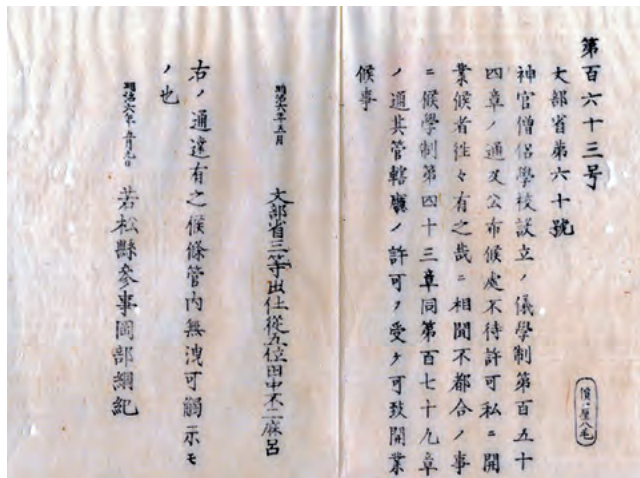 第百六十三号
文部省第六十號
神官僧侶學校設立ノ儀學制第百五十
四章ノ通及公布候處不待許可私ニ開
業候者往々有之哉ニ相聞不都合ノ事
ニ候學制第四十三章同第百七十九章
ノ通其管轄廳ノ許可ヲ受ケ可致開業
候事
明治六年五月
文部省三等出仕從五位田中不二麻呂
右ノ通達有之候條管内無洩可觸示モ
ノ也
明治六年
若松縣參事岡部綱紀